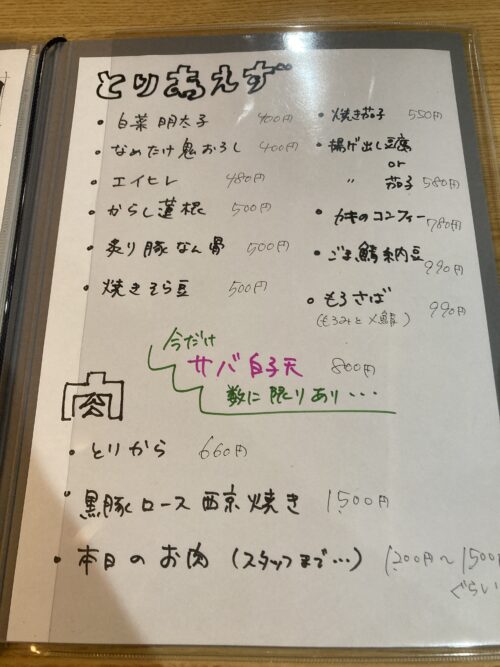 とりあえず
・白菜明太子 400円
・なめたけ鬼おろし 400円
・エイヒレ 480円
・からし蓮根 500円
・炙り豚なん骨 500円
・焼きそら豆 500円
・焼き茄子 550円
・揚げ出し豆腐
or
〃 茄子 580円
・カキのコンフィー 780円
・ごま鯖納豆 990円
・もろさば 990円
(もろみと〆鯖)
今だけ
サバ白子天 800円
数に限りあり・・・
肉
・とりから 660円
・黒豚ロース西京焼き 1,500円
・本日のお肉 (スタッフまで…) 1,200円〜1,500円
ぐらい